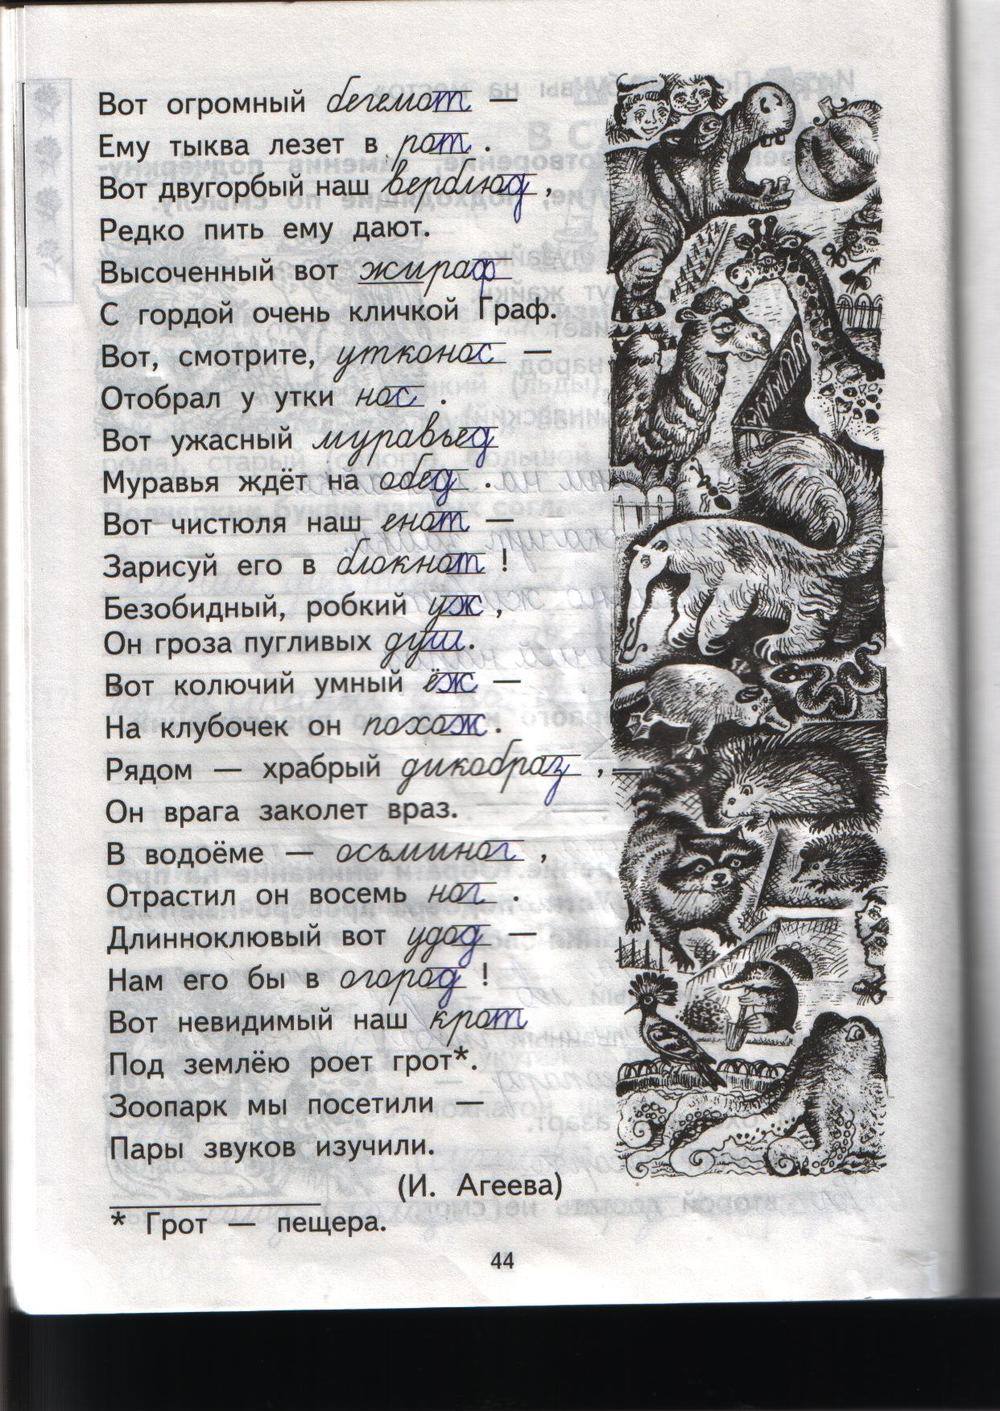 Вот огромный бегемот —
Ему тыква лезет в рот.
Вот двугорбый наш верблюд,
Редко пить ему дают.
Высоченный вот жираф
С гордой очень кличкой Граф.
Вот, смотрите, утконос —
Отобрал у утки нос.
Вот ужасный муравьед
Муравья ждёт на обед.
Вот чистюля наш енот —
Зарисуй его в блокнот!
Безобидный, робкий уж,
Он гроза пугливых душ.
Вот колючий умный ёж —
На клубочек он похож.
Рядом — храбрый дикобраз,
Он врага заколет враз.
В водоёме — осьминог,
Отрастил он восемь ног.
Длинноклювый вот удод —
Нам его бы в огород!
Вот невидимый наш крот
Под землёю роет грот*.
Зоопарк мы посетили —
Пары звуков изучили.
(И. Агеева)
* Грот — пещера.
44